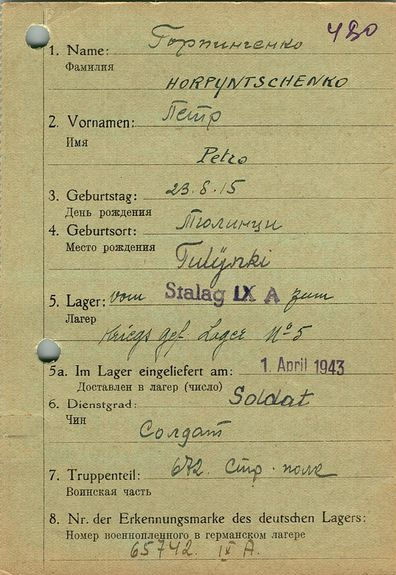 430
1. Name: Горпинченко
Фамилия
HORPYNTSCHENKO
2. Vornamen: Петр
Имя
Petro
3. Geburtstag: 23.8.15
День рождения
4. Geburtsort: Тюлинци
Место рождения
5. Lager: vom Stalag IX A zum
Лагерь
kriegs gef. Lager No 5
5a. Im Lager eingeliefert am: 1. April 1943
Доставлен в лагерь (число)
6. Dienstgrad: Soldat
Чин
Солдат
7. Truppenteil: 672. стр. полк
Воинская часть
8. Nr. der Erkennungsmarke des deutschen Lagers:
Номер военнопленного в германском лагере
65742. IX A.